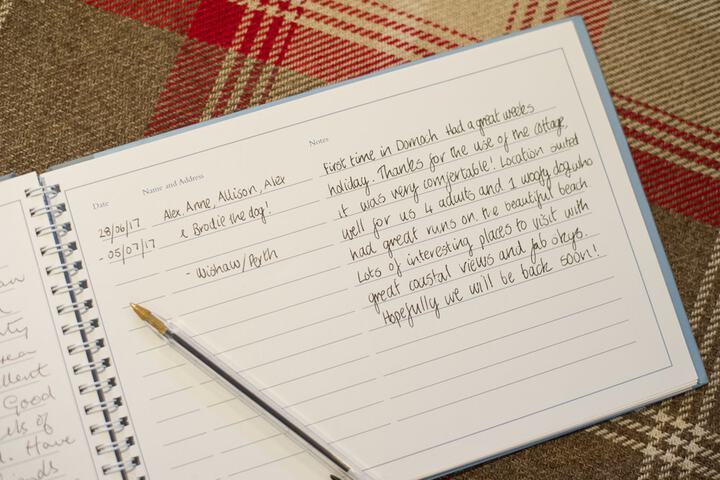 an
ty
rea
llent
Good
els of
. Have
iends
Date
Name and Address
Notes
28/06/17
- 05/07/17
Alex, Anne, Allison, Alex
& Brodie the dog!
- Wishaw/Perth
First time in Dornoch. Had a great weeks
holiday. Thanks for the use of the cottage,
it was very comfortable! Location suited
well for us 4 adults and 1 woofy dog who
had great runs on the beautiful beach.
Lots of interesting places to visit with
great coastal views and fab skys.
Hopefully we will be back soon!